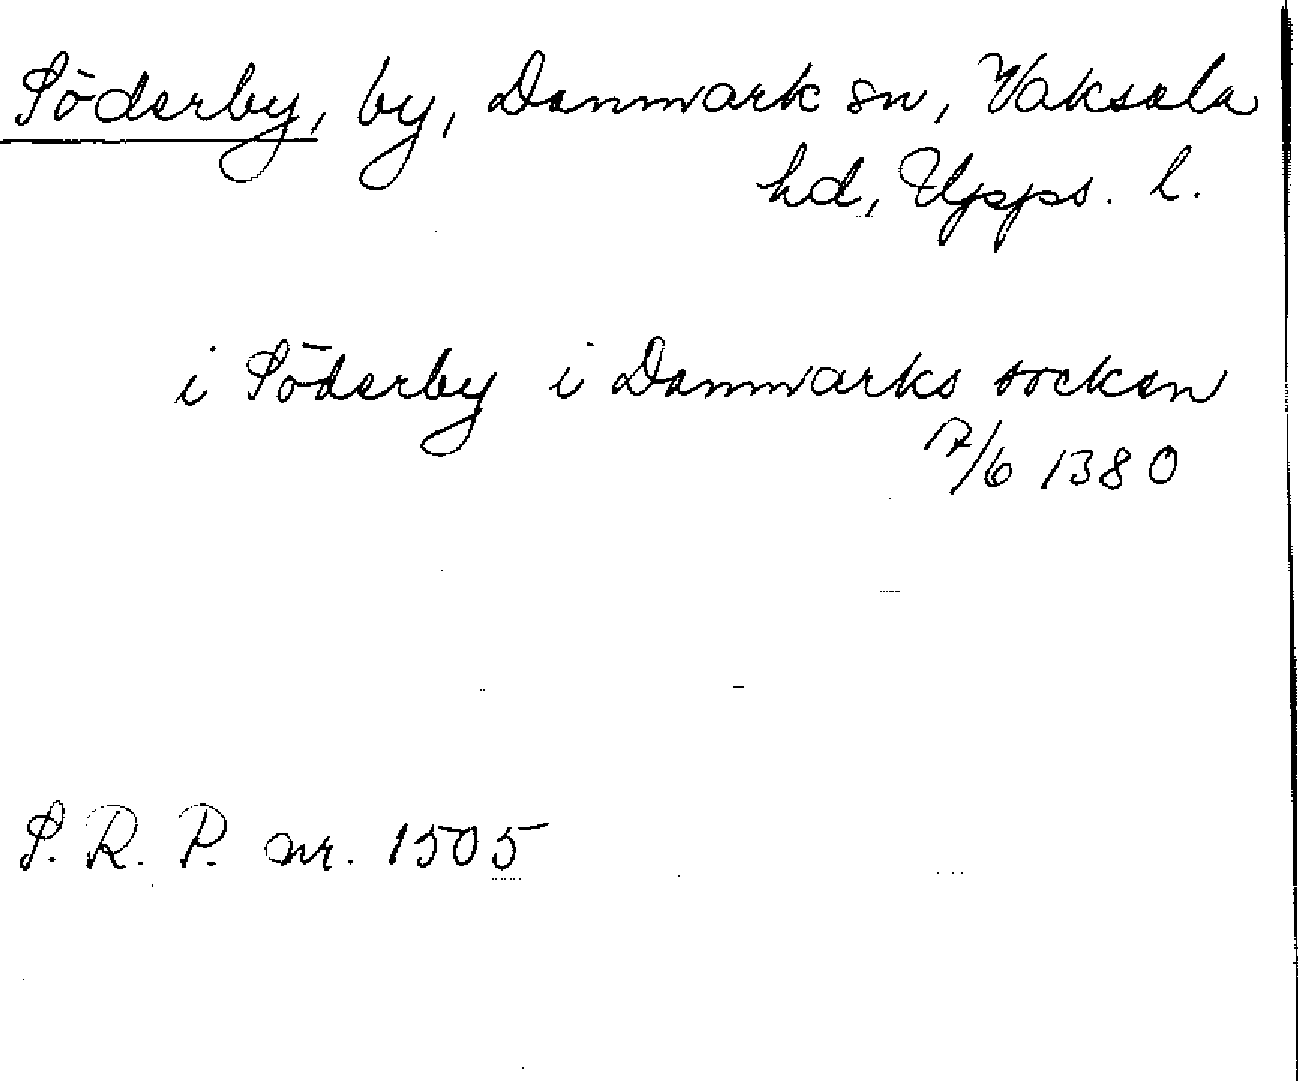 Söderby, by, Danmark sn, Vaksala
hd, Upps. l.
i Söderby i Danmarks socken
7/6 1380
S. R. P. nr. 1505